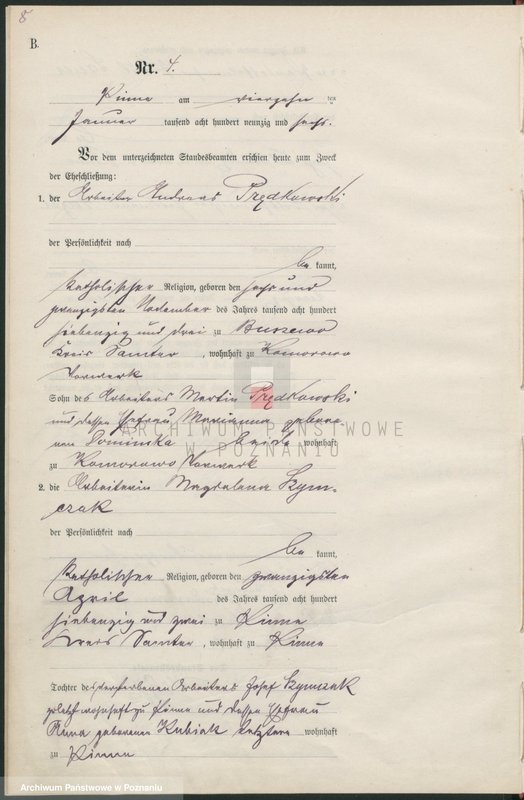 8
B.
Nr. 4.
Pinne am vierzehn ten
Januar tausend acht hundert neunzig und sechs.
Vor dem unterzeichneten Standesbeamten erschien heute zum Zweck
der Eheschließung:
1. der Arbeiter Andreas Prędkowski
der Persönlichkeit nach
be kannt,
katholischer Religion, geboren den sechs und
zwanzigsten November des Jahres tausend acht hundert
siebenzig und drei zu Buszewo
Kreis Samter, wohnhaft zu Komorowo
Vorwerk
Sohn des Arbeiters Martin Prędkowski
und dessen Ehefrau Marianna gebore
nen Dominska beide wohnhaft
zu Komorowo Vorwerk
ARCHIWUM PAŃSTWOWE
W POZNANIU
2. die Arbeiterin Magdalena Szym-
czak
der Persönlichkeit nach
be kannt,
katholischer Religion, geboren den zwanzigsten
April des Jahres tausend acht hundert
siebenzig und zwei zu Pinne
Kreis Samter, wohnhaft zu Pinne
Tochter des verstorbenen Arbeiters Josef Szymczak
zuletzt wohnhaft zu Pinne und dessen Ehefrau
Anna geborenen Kubiak letztere wohnhaft
zu Pinne
Archiwum Państwowe w Poznaniu